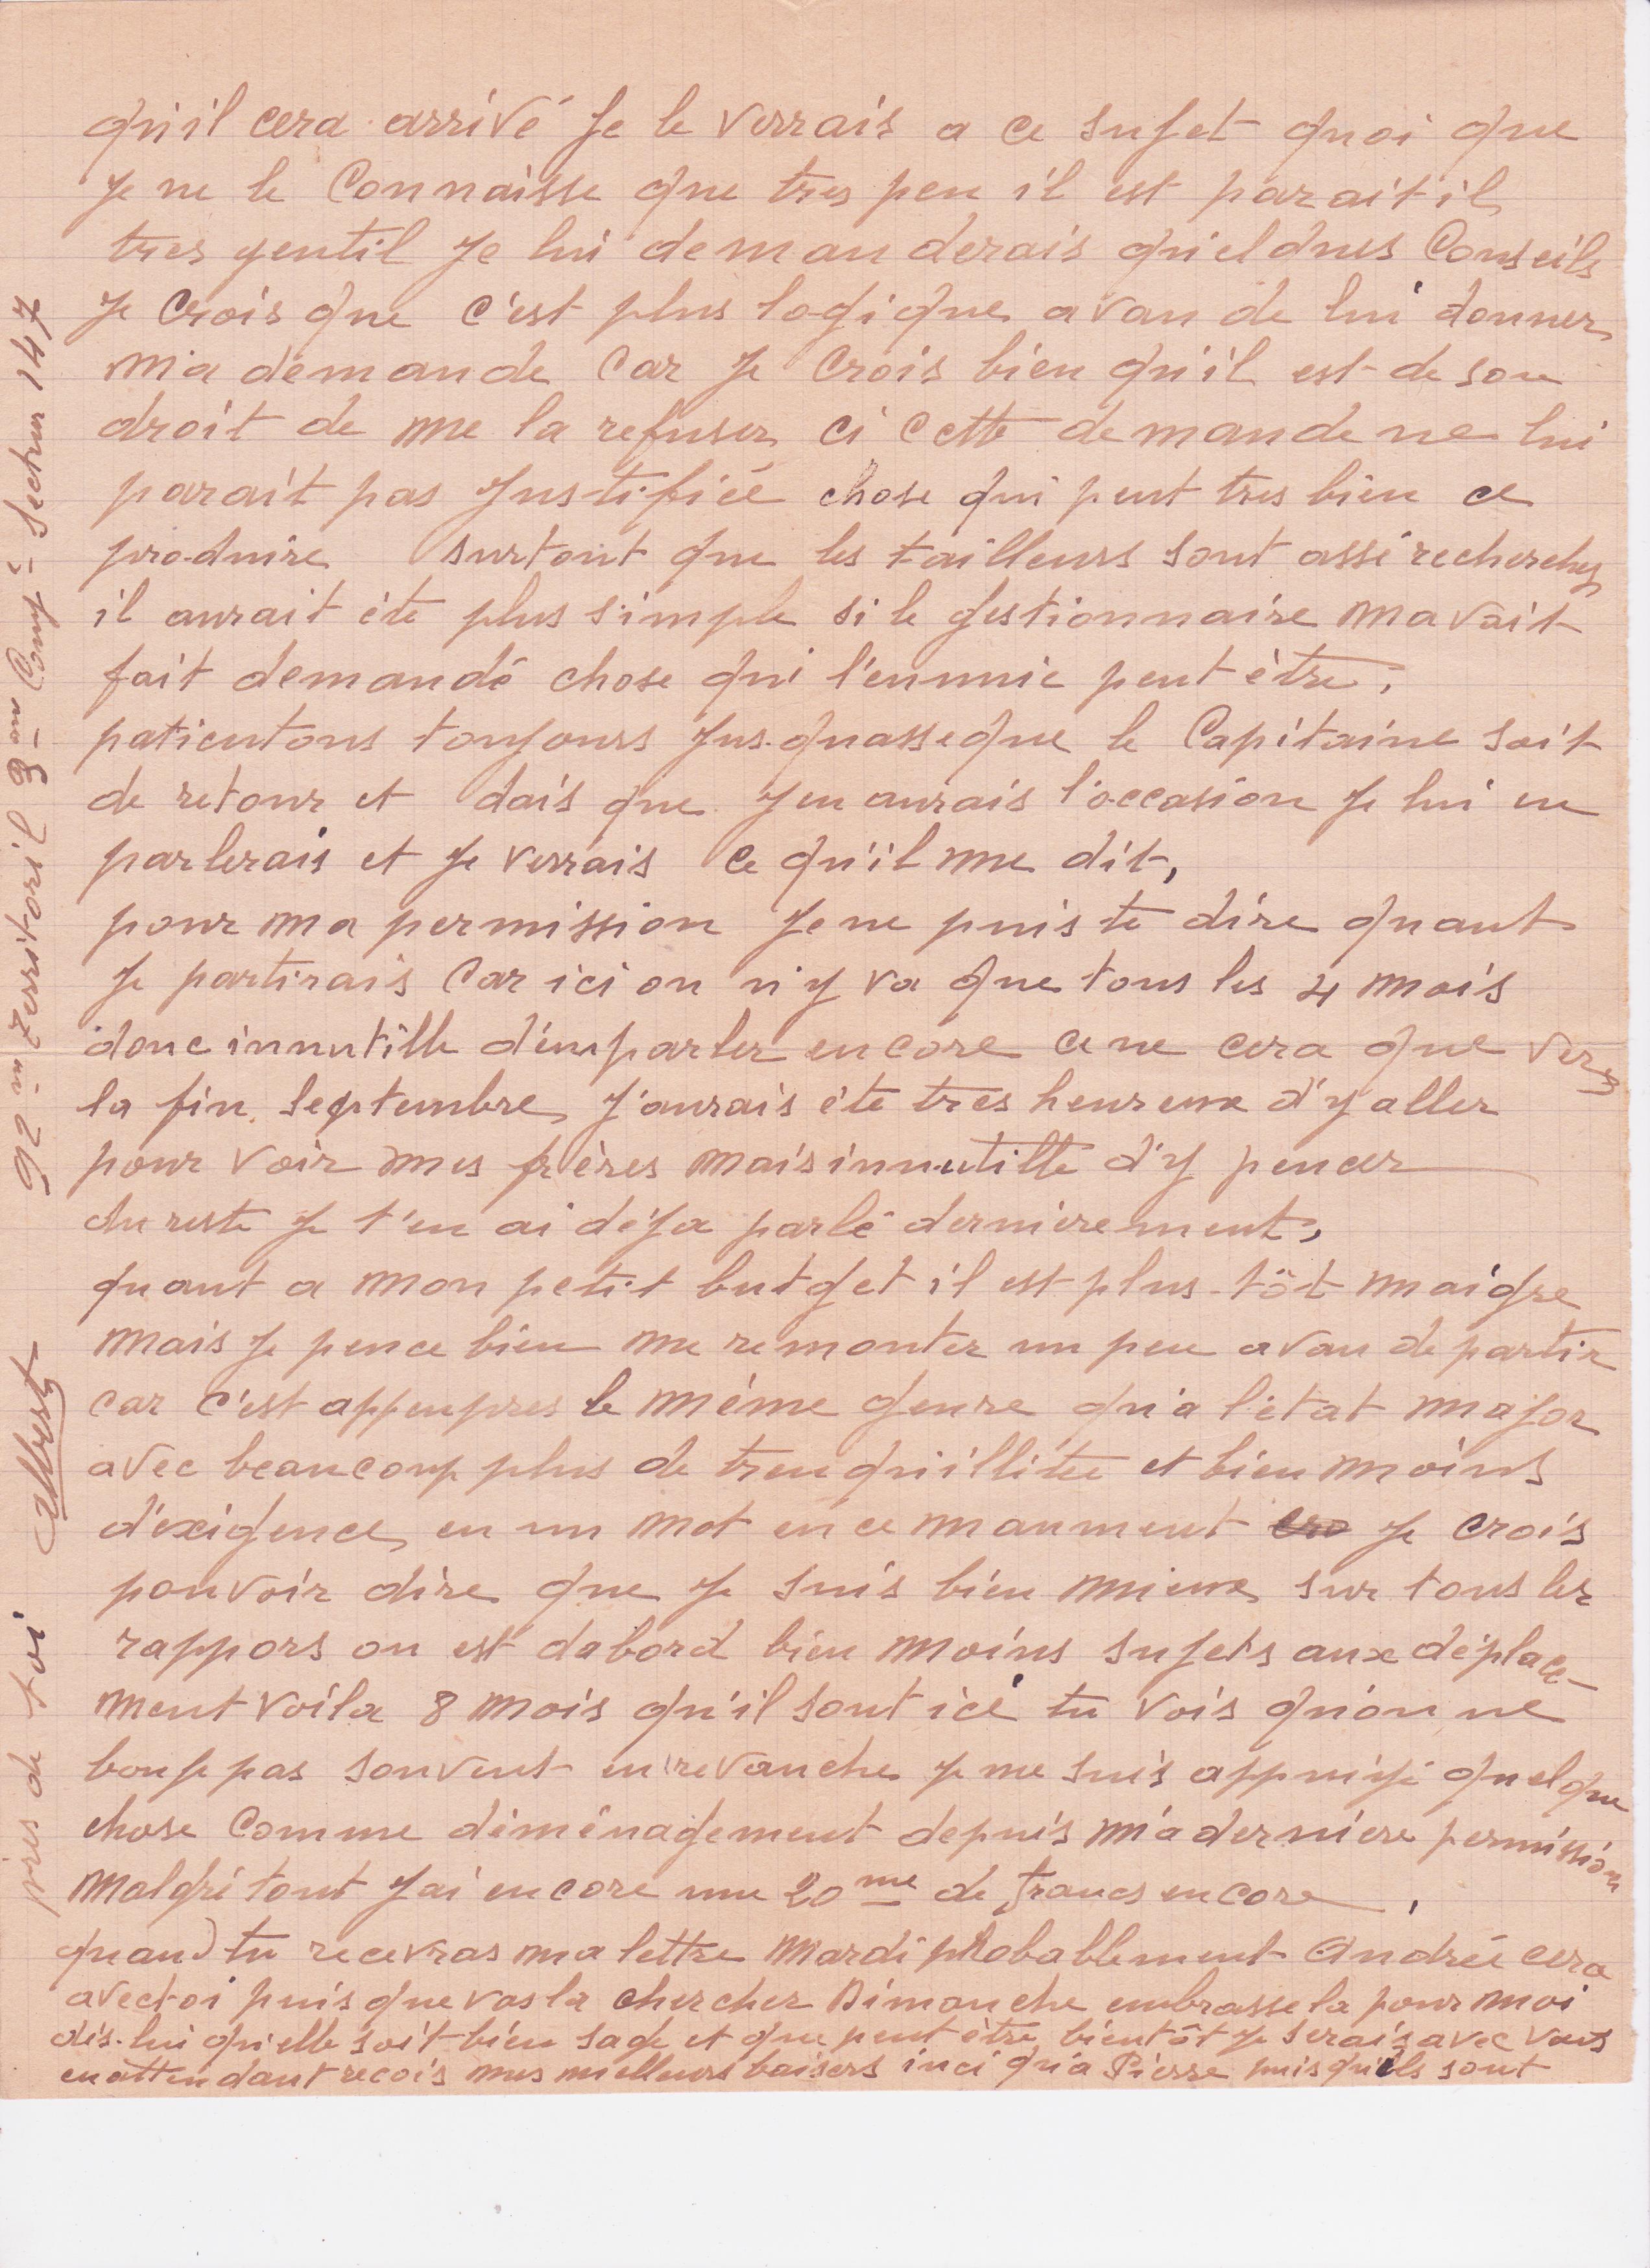 qu'il cera arrivé Je le verrais a ce sujet quoi que
Je ne le Connaisse que tres peu il est parait-il
tres gentil Je lui demanderais quelques Conseils
Je Crois que c'est plus logique avan de lui donner
ma demande Car Je Crois bien qu'il est de son
droit de me la refuser ci cette demande ne lui
parait pas Justifiée chose qui peut tres bien ce
produire surtout que les tailleurs sont assé recherchés
il aurait été plus simple si le gestionnaire mavait
fait demandé chose qui l'ennuie peut être,
patientons toujours Jus.quasseque le Capitaine soit
de retour et dais que J'en aurais l'occasion Je lui en
parlerais et Je verrais ce qu'il me dit,
pour ma permission Je ne puis te dire quant
Je partirais Car ici on n'y va que tous les 4 mois
donc innutille d'emparler encore ce ne cera que vers
la fin Septembre, J'aurais été tres heureux d'y aller
pour voir mes frères mais innutille d'y pencer
du reste Je t'en ai déja parlé dernierement,
quant a mon petit butget il est plus-tôt maigre
mais Je pence bien me remonter un peu avan de partir
car c'est appeupres le même genre qu'a l'état major
avec beaucoup plus de trenquillitée et bien moins
d'exigence, en un mot en ce maument Je crois
pouvoir dire que Je suis bien mieux sur tous les
rappors on est dabord bien moins sujets aux déplace-
ment voila 8 mois qu'il sont ici tu vois qu'on ne
bouge pas souvent en revanche Je me suis appuiyé quelque
chose Comme déménagement depuis ma derniere permission
malgré tout J'ai encore une 20me de francs encore,
quand tu recevras ma lettre mardi probablement Andrée cera
avec toi puisque vas la chercher Dimanche embrasse la pour moi
dis-lui qu'elle soit bien sage et que peut être bientôt Je serais avec vous
en attendant recois mes meilleurs baisers inci qu'a Pierre puisqu'ils sont
près de toi Albert
92me Territoril 9me Comp= Secteur 147